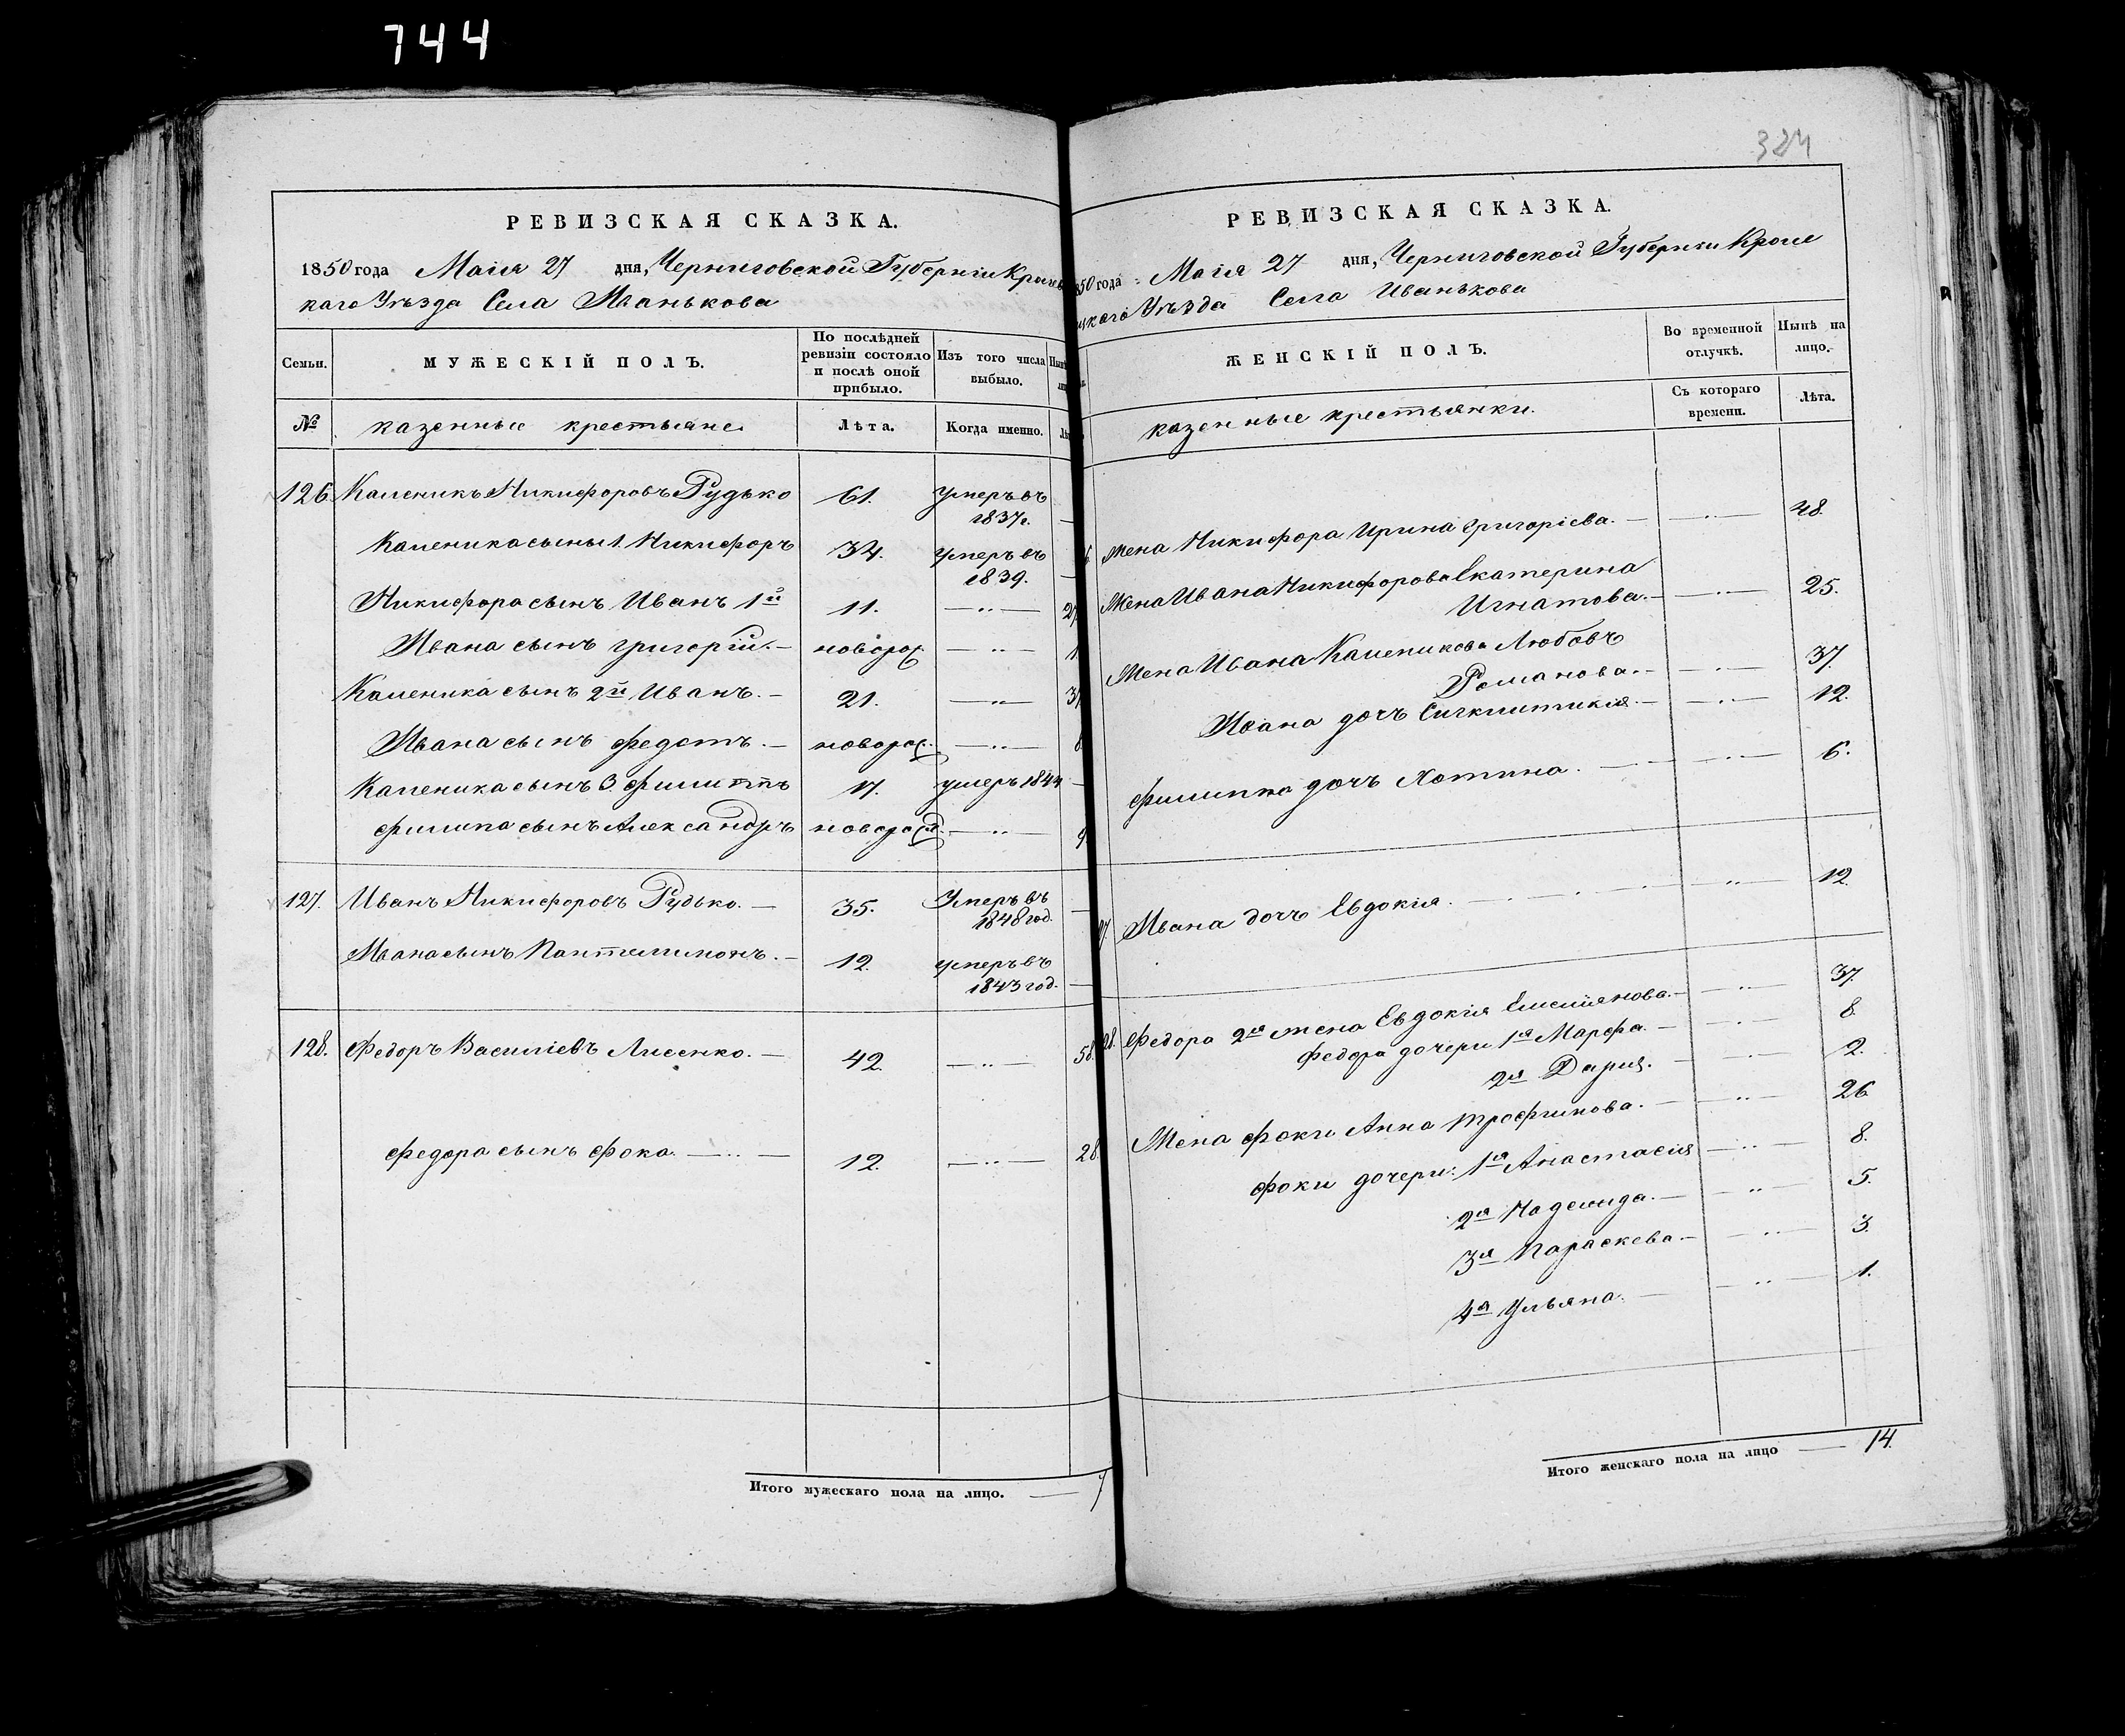 744
324
РЕВИЗСКАЯ СКАЗКА.
1850 года Маія 27 дня, Черниговской Губерніи
каго Уѣзда Села Иванькова
Семьи.
МУЖЕСКІЙ ПОЛЪ.
По послѣдней ревизіи состояло и послѣ оной прибыло.
Изъ того числа выбыло.
№
казенные крестьяне.
Лѣта.
Когда именно.
126. Каленикъ Никифоровъ Рудько 61. умеръ въ
1837г. —
Каленика сыны 1. Никифоръ 34. умеръ въ
1839. —
Никифора сынъ Иванъ 1й 11. — „ —
Ивана сынъ григорій. — новорож — „ —
Каленика сынъ 2й Иванъ. — 21. — „ —
Ивана сынъ федотъ. — новорож. — „ — 8
Каленика сынъ 3. филиппъ 17. умеръ 1844 —
филипа сынъ Александръ новорожд. — „ —
127. Иванъ Никифоровъ Рудько. — 35. Умеръ въ
1848 год. —
Ивана сынъ Пантелимонъ. — 12. умеръ въ
1843 год. —
128. Федоръ Василіевъ Лисенко. — 42. — „ — 58.
федора сынъ фока. — „ — 12. — „ — 28.
Итого мужескаго пола на лицо. — 7
РЕВИЗСКАЯ СКАЗКА.
850 года Маія 27 дня, Черниговской Губерніи Кроле
вцкаго Уѣзда Села Иванькова
ЖЕНСКІЙ ПОЛЪ.
Во временной отлучкѣ.
Нынѣ на лицо.
казенные крестьянки.
Съ котораго времени.
Лѣта.
Жена Никифора Ирина григоріева. — — „ — 48.
Жена Ивана Никифорова Екатерина
Игнатова. — — „ — 25.
Жена Ивана Каленикова Любовъ
Романова. — — „ — 37.
Ивана дочъ — „ — 12.
филиппа дочъ Хотина. — „ — 6.
Ивана дочъ Евдокія. — „ — 12.
28. Федора 2я жена Евдокія Емеліянова. — — „ — 37.
федора дочери 1я Марфа. — — „ — 8.
2я Дарія. — — „ — 2.
Жена фоки Анна трофимова. — — „ — 26.
фоки дочери: 1я Анастасія — „ — 8.
2я Надежда. — — „ — 5.
3я Параскева. — — „ — 3.
4я Ульяна. — — „ — 1.
Итого женскаго пола на лицо — 14.